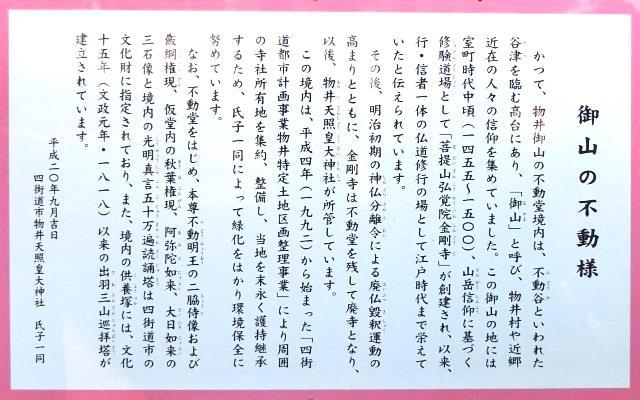 御山の不動様
かつて、物井御山の不動堂境内は、不動谷といわれた
谷津を臨む高台にあり、「御山」と呼び、物井村や近郷
近在の人々の信仰を集めていました。この御山の地には
室町時代中頃(一四五五~一五〇〇)、山岳信仰に基づく
修験道場として「菩提山弘覚院金剛寺」が創建され、以来、
行・信者一体の仏道修行の場として江戸時代まで栄えて
いたと伝えられています。
その後、明治初期の神仏分離令による廃仏毀釈運動の
高まりとともに、金剛寺は不動堂を残して廃寺となり、
以後、物井天照皇大神社が所管しています。
この境内は、平成四年(一九九二)から始まった「四街
道都市計画事業物井特定土地区画整理事業」により周囲
の寺社所有地を集約、整備し、当地を末永く護持継承
するため、氏子一同によって緑化をはかり環境保全に
努めています。
なお、不動堂をはじめ、本尊不動明王の二脇侍像および
飯綱権現、仮堂内の秋葉権現、阿弥陀如来、大日如来の
三石像と境内の光明真言五十万遍読誦塔は四街道市の
文化財に指定されており、また、境内の供養塚には、文化
十五年(文政元年・一八一八)以来の出羽三山巡拝塔が
建立されています。
平成二〇年九月吉日
四街道市物井天照皇大神社 氏子一同